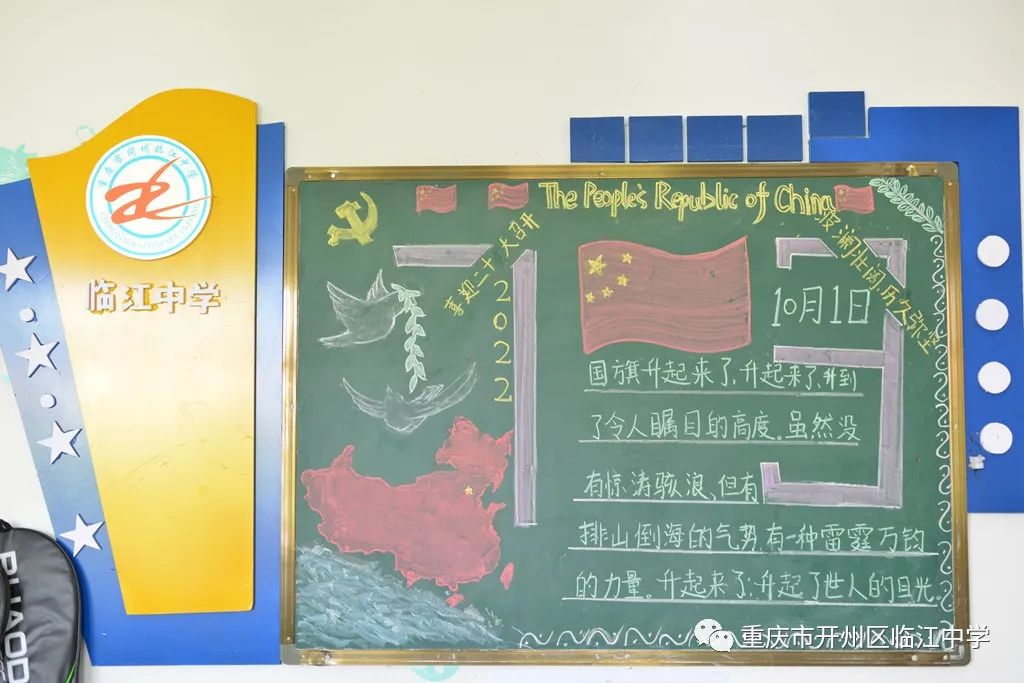 重庆市开州临江中学
临江中学
The People's Republic of China
喜迎二十大召开
2022
波澜壮阔,历久弥坚
73
10月1日
国旗升起来了,升起来了,升到
了令人瞩目的高度。虽然没
有惊涛骇浪,但有
排山倒海的气势,有一种雷霆万钧
的力量。升起来了,升起了世人的目光。
重庆市开州区临江中学